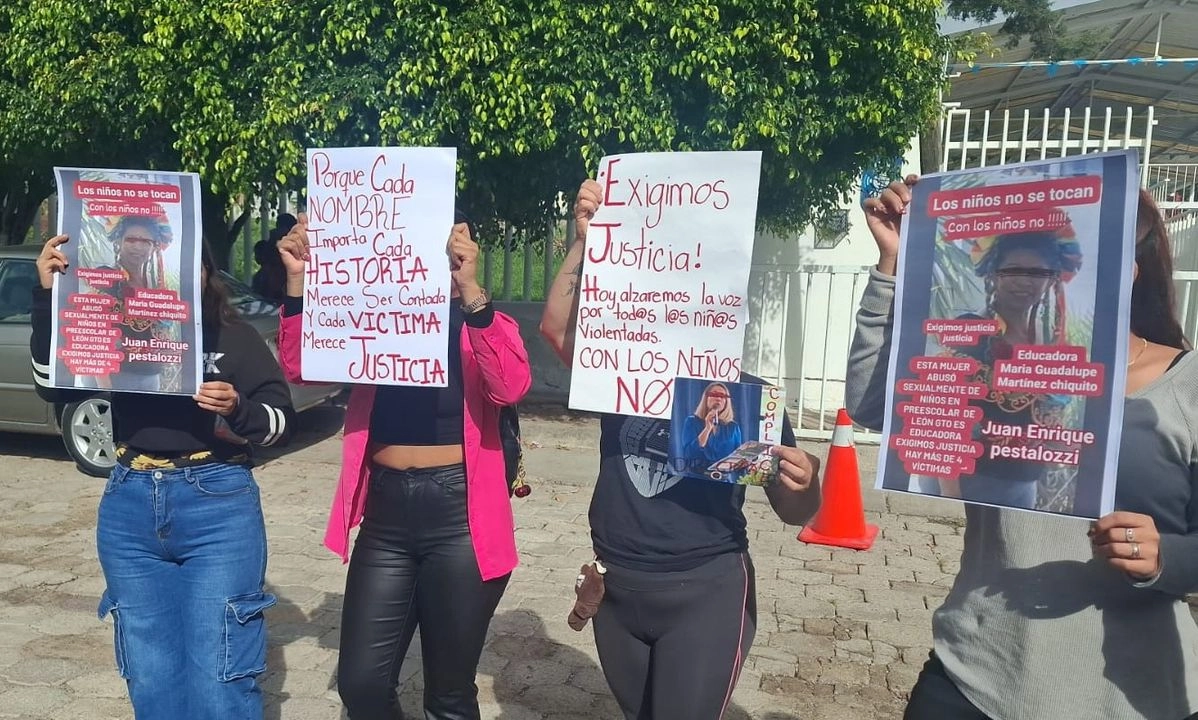 Los niños no se tocan
Con los niños no !!!!!
Exigimos justicia
justicia
ESTA MUJER
ABUSÓ
SEXUALMENTE DE
NIÑOS EN
PREESCOLAR DE
LEÓN GTO ES
EDUCADORA
EXIGIMOS JUSTICIA
HAY MÁS DE 4
VÍCTIMAS
Educadora
Maria Guadalupe
Martínez chiquito
Juan Enrique
pestalozzi
Porque Cada
NOMBRE
Importa Cada
HISTORIA
Merece Ser Contada
Y Cada VICTIMA
Merece
JUSTICIA
¡Exigimos
Justicia!
Hoy alzaremos la voz
por tod@s l@s niñ@s
Violentadas.
CON LOS NIÑOS
NO
Los niños no se tocan
Con los niños no !!!!!
Exigimos justicia
justicia
ESTA MUJER
ABUSÓ
SEXUALMENTE DE
NIÑOS EN
PREESCOLAR DE
LEÓN GTO ES
EDUCADORA
EXIGIMOS JUSTICIA
HAY MAS DE 4
VÍCTIMAS
Educadora
Maria Guadalupe
Martínez chiquito
Juan Enrique
pestalozzi